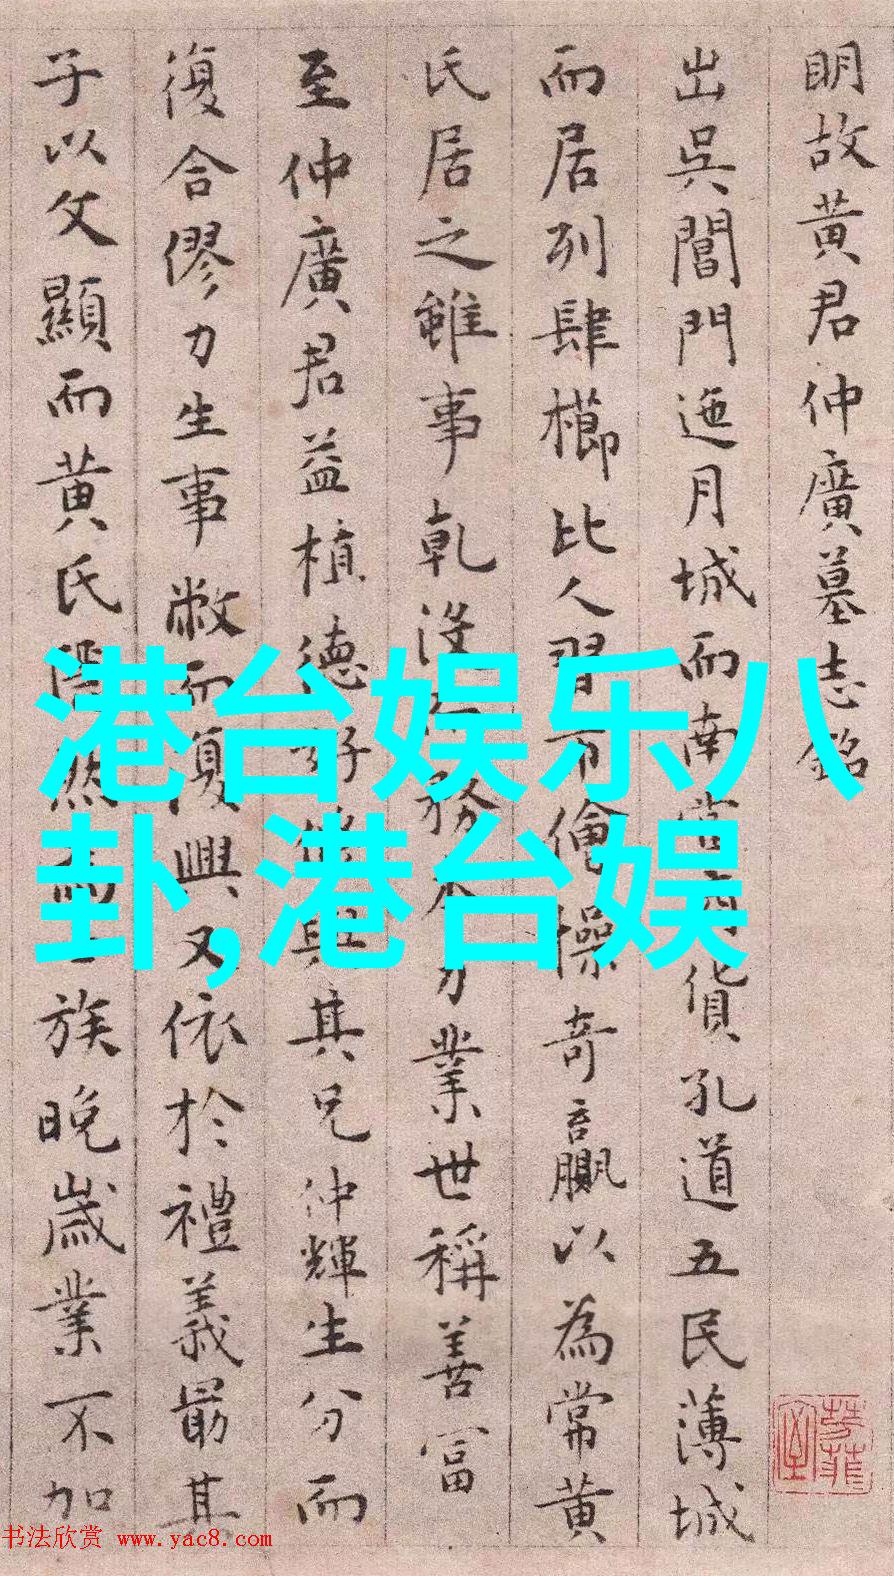 明故黄君仲廣墓志銘
出吳閶門迤月城而南常貨孔道五民薄城
而居列肆櫛比人習市儈操奇贏以為常黄
氏居之雖事乾没務本力業世稱善富
至仲廣君益植德好與其兄仲輝生分而
復合僇力生事敝而復興又依於禮義最其
子以文顯而黄氏族晚歲業不加
港台娱乐八
卦,港台娱
书法欣赏 www.yac8.com